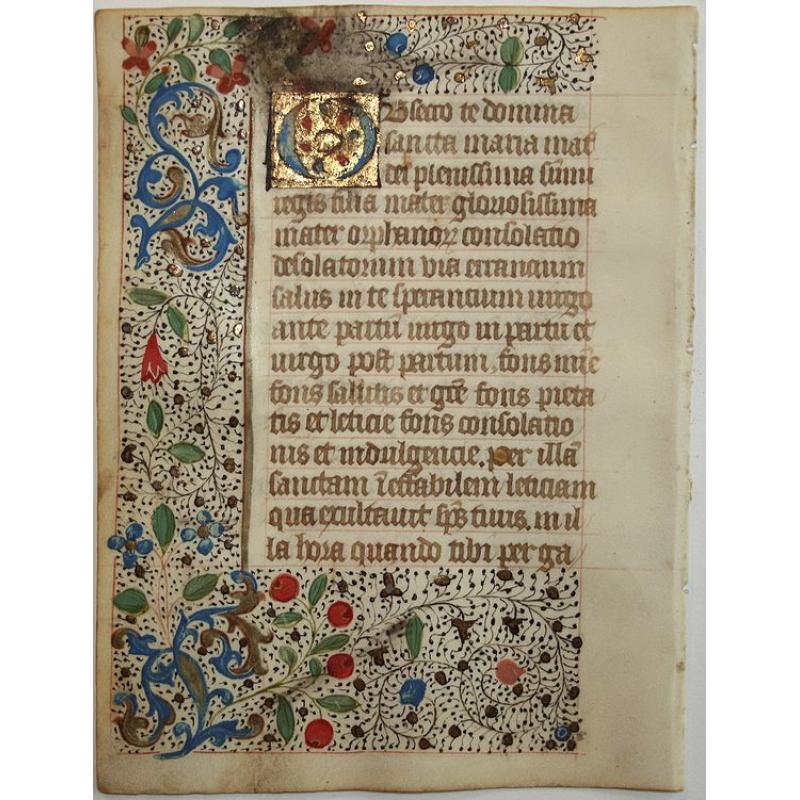 OBsecro te domina
sancta maria mat
dei plenissima sūmi
regis filia mater gloriosissima
mater orphanoꝝ consolatio
desolatorum via errancium
salus in te sperancium uirgo
ante partū uirgo in partu et
uirgo post partum, fons mīe
fons salutis et gr̄e fons pieta
tis et leticie fons consolatio
nis et indulgencie. per illā
sanctam īeffabilem leticiam
qua exultauit sp̄s tuus. in il
la hora quando tibi per ga